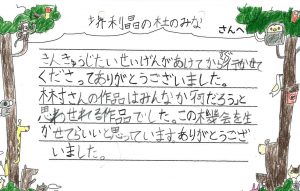 堺利晶の杜のみな
さんへ
さんきゅうじたいせいげんがあけてからすぐ行かせて
くださってありがとうございました。
木村さんの作品はみんなが何だろうと
思わせれる作品でした。この機会を生
かせてらいいと思っていますありがとうござ
いました。